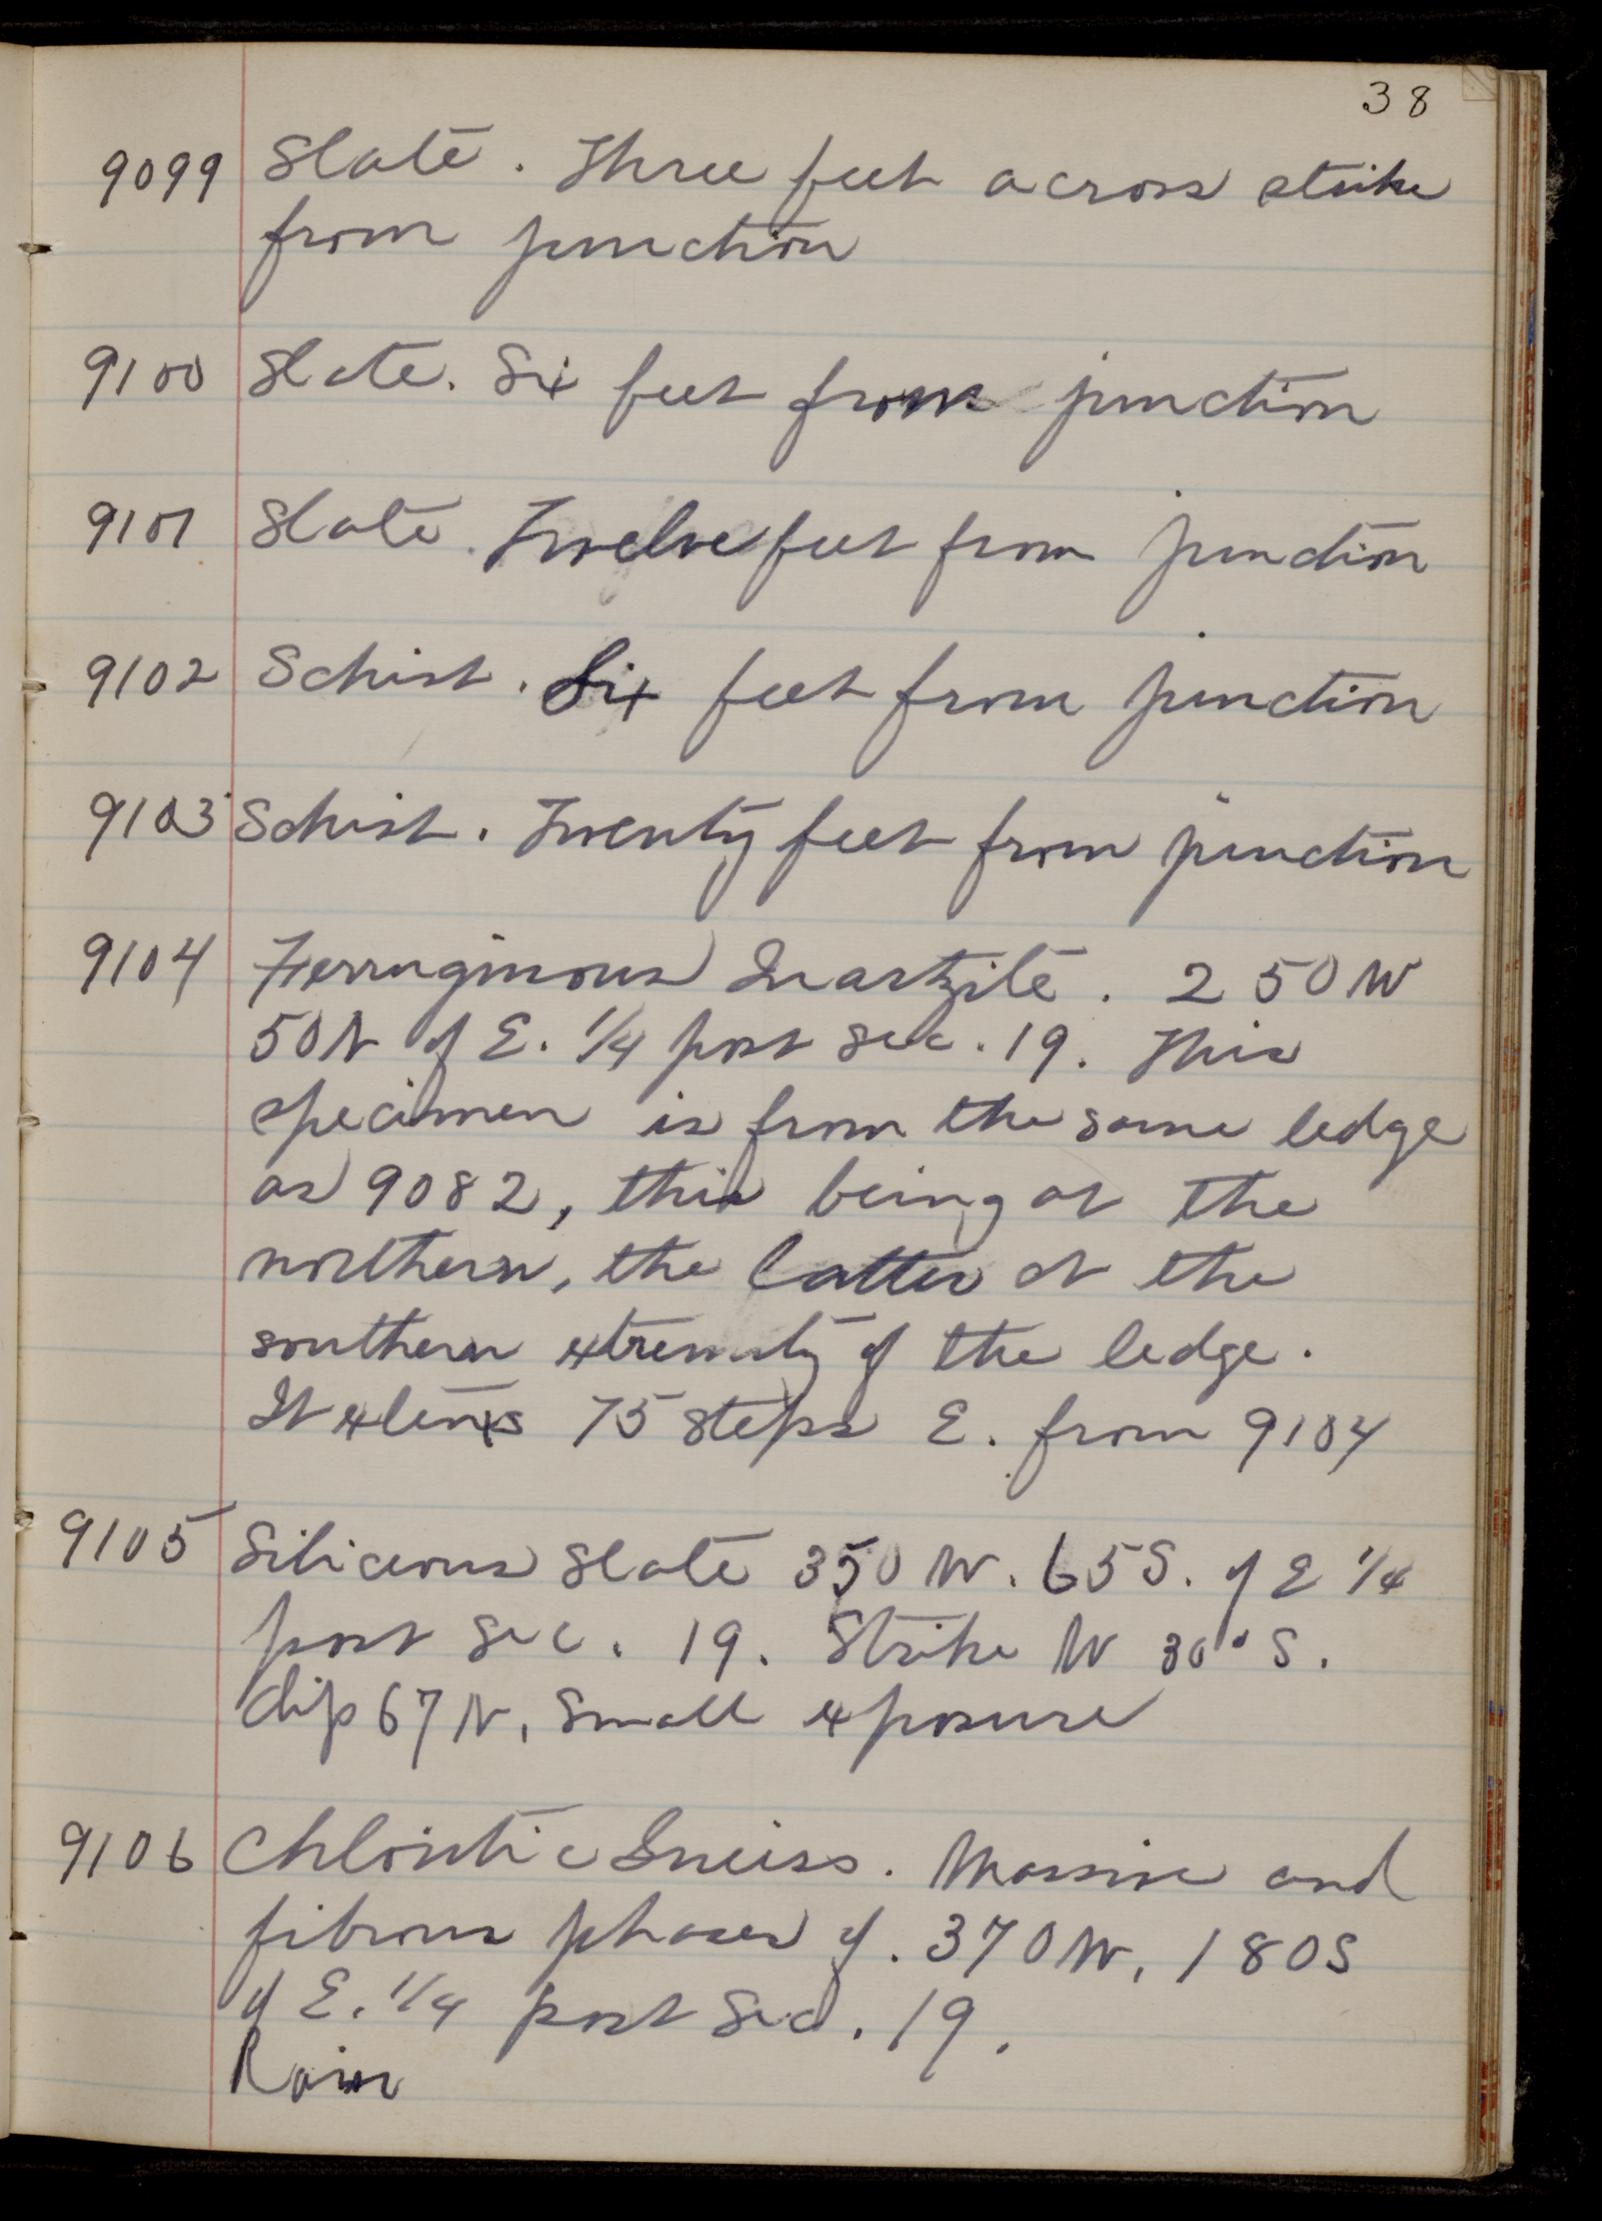 38
9099 Slate. Three feet across strike
from junction
9100 Slate. Six feet from junction
9101 Slate. Twelve feet from junction
9102 Schist. Six feet from junction
9103 Schist. Twenty feet from junction
9104 Ferruginous Quartzite. 250 W
50 N of E. 1/4 post Sec. 19. This
specimen is from the same ledge
as 9082, this being at the
northern, the latter at the
southern extremity of the ledge.
It extends 75 steps E. from 9104
9105 Silicious Slate 350 W. 65 S. of E 1/4
post Sec. 19. Strike W 30° S.
dip 67 N, Small exposure
9106 Chloritic Gneiss. Massive and
fibrous phases of. 370 W, 180 S
of E. 1/4 post Sec. 19.
Rain